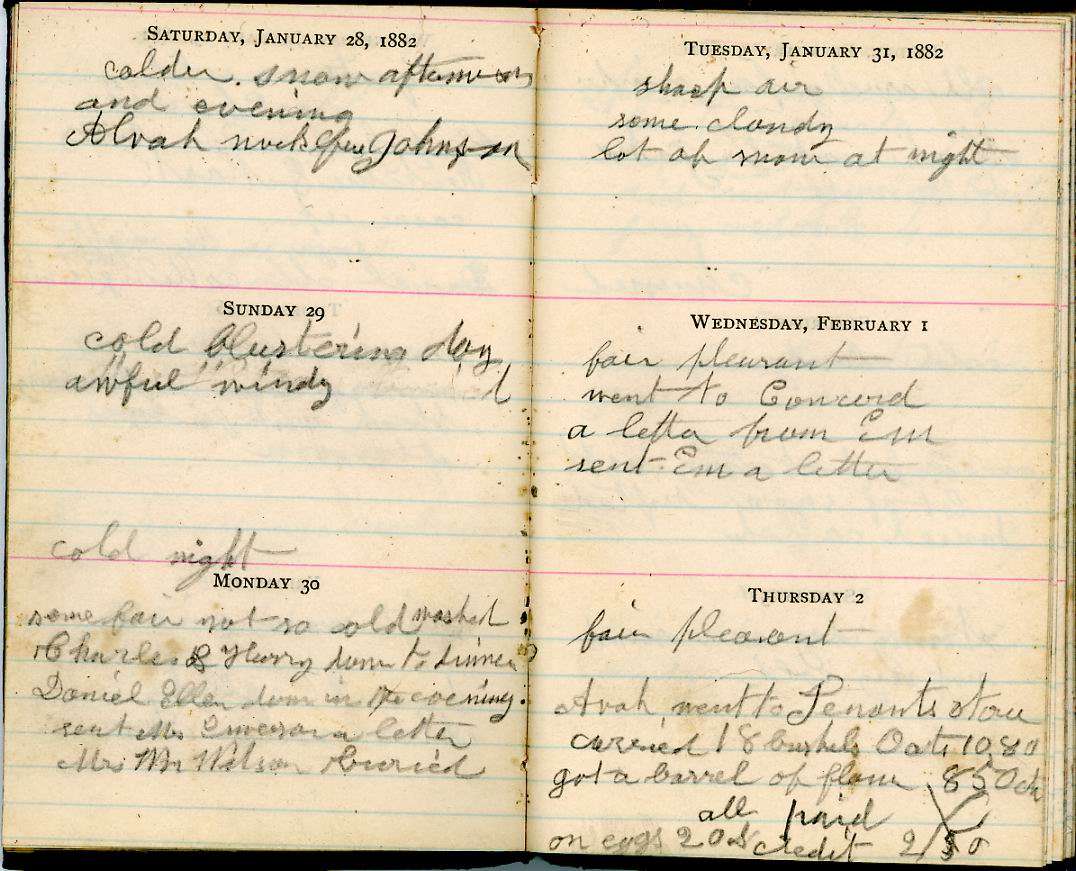 SATURDAY, JANUARY 28, 1882
colder. snow afternoon
and evening
Alvah Johnson
SUNDAY 29
cold blustering day
awful windy
cold night
MONDAY 30
some fair not so cold washed
Charles & Henry down to dinner
Daniel Ellen down in the evening.
sent Mrs Emerson a letter
Mrs Wm Wilson Buried
TUESDAY, JANUARY 31, 1882
sharp air
some cloudy
lot of snow at night
WEDNESDAY, FEBRUARY 1
fair pleasant
went to Concord
a letter from Em
sent Em a letter
THURSDAY 2
fair pleasant
Avah went to Tenants store
carried 18 bushels Oats 10,80
got a barrel of flour 850
all paid
on eggs 20 credit 2/50